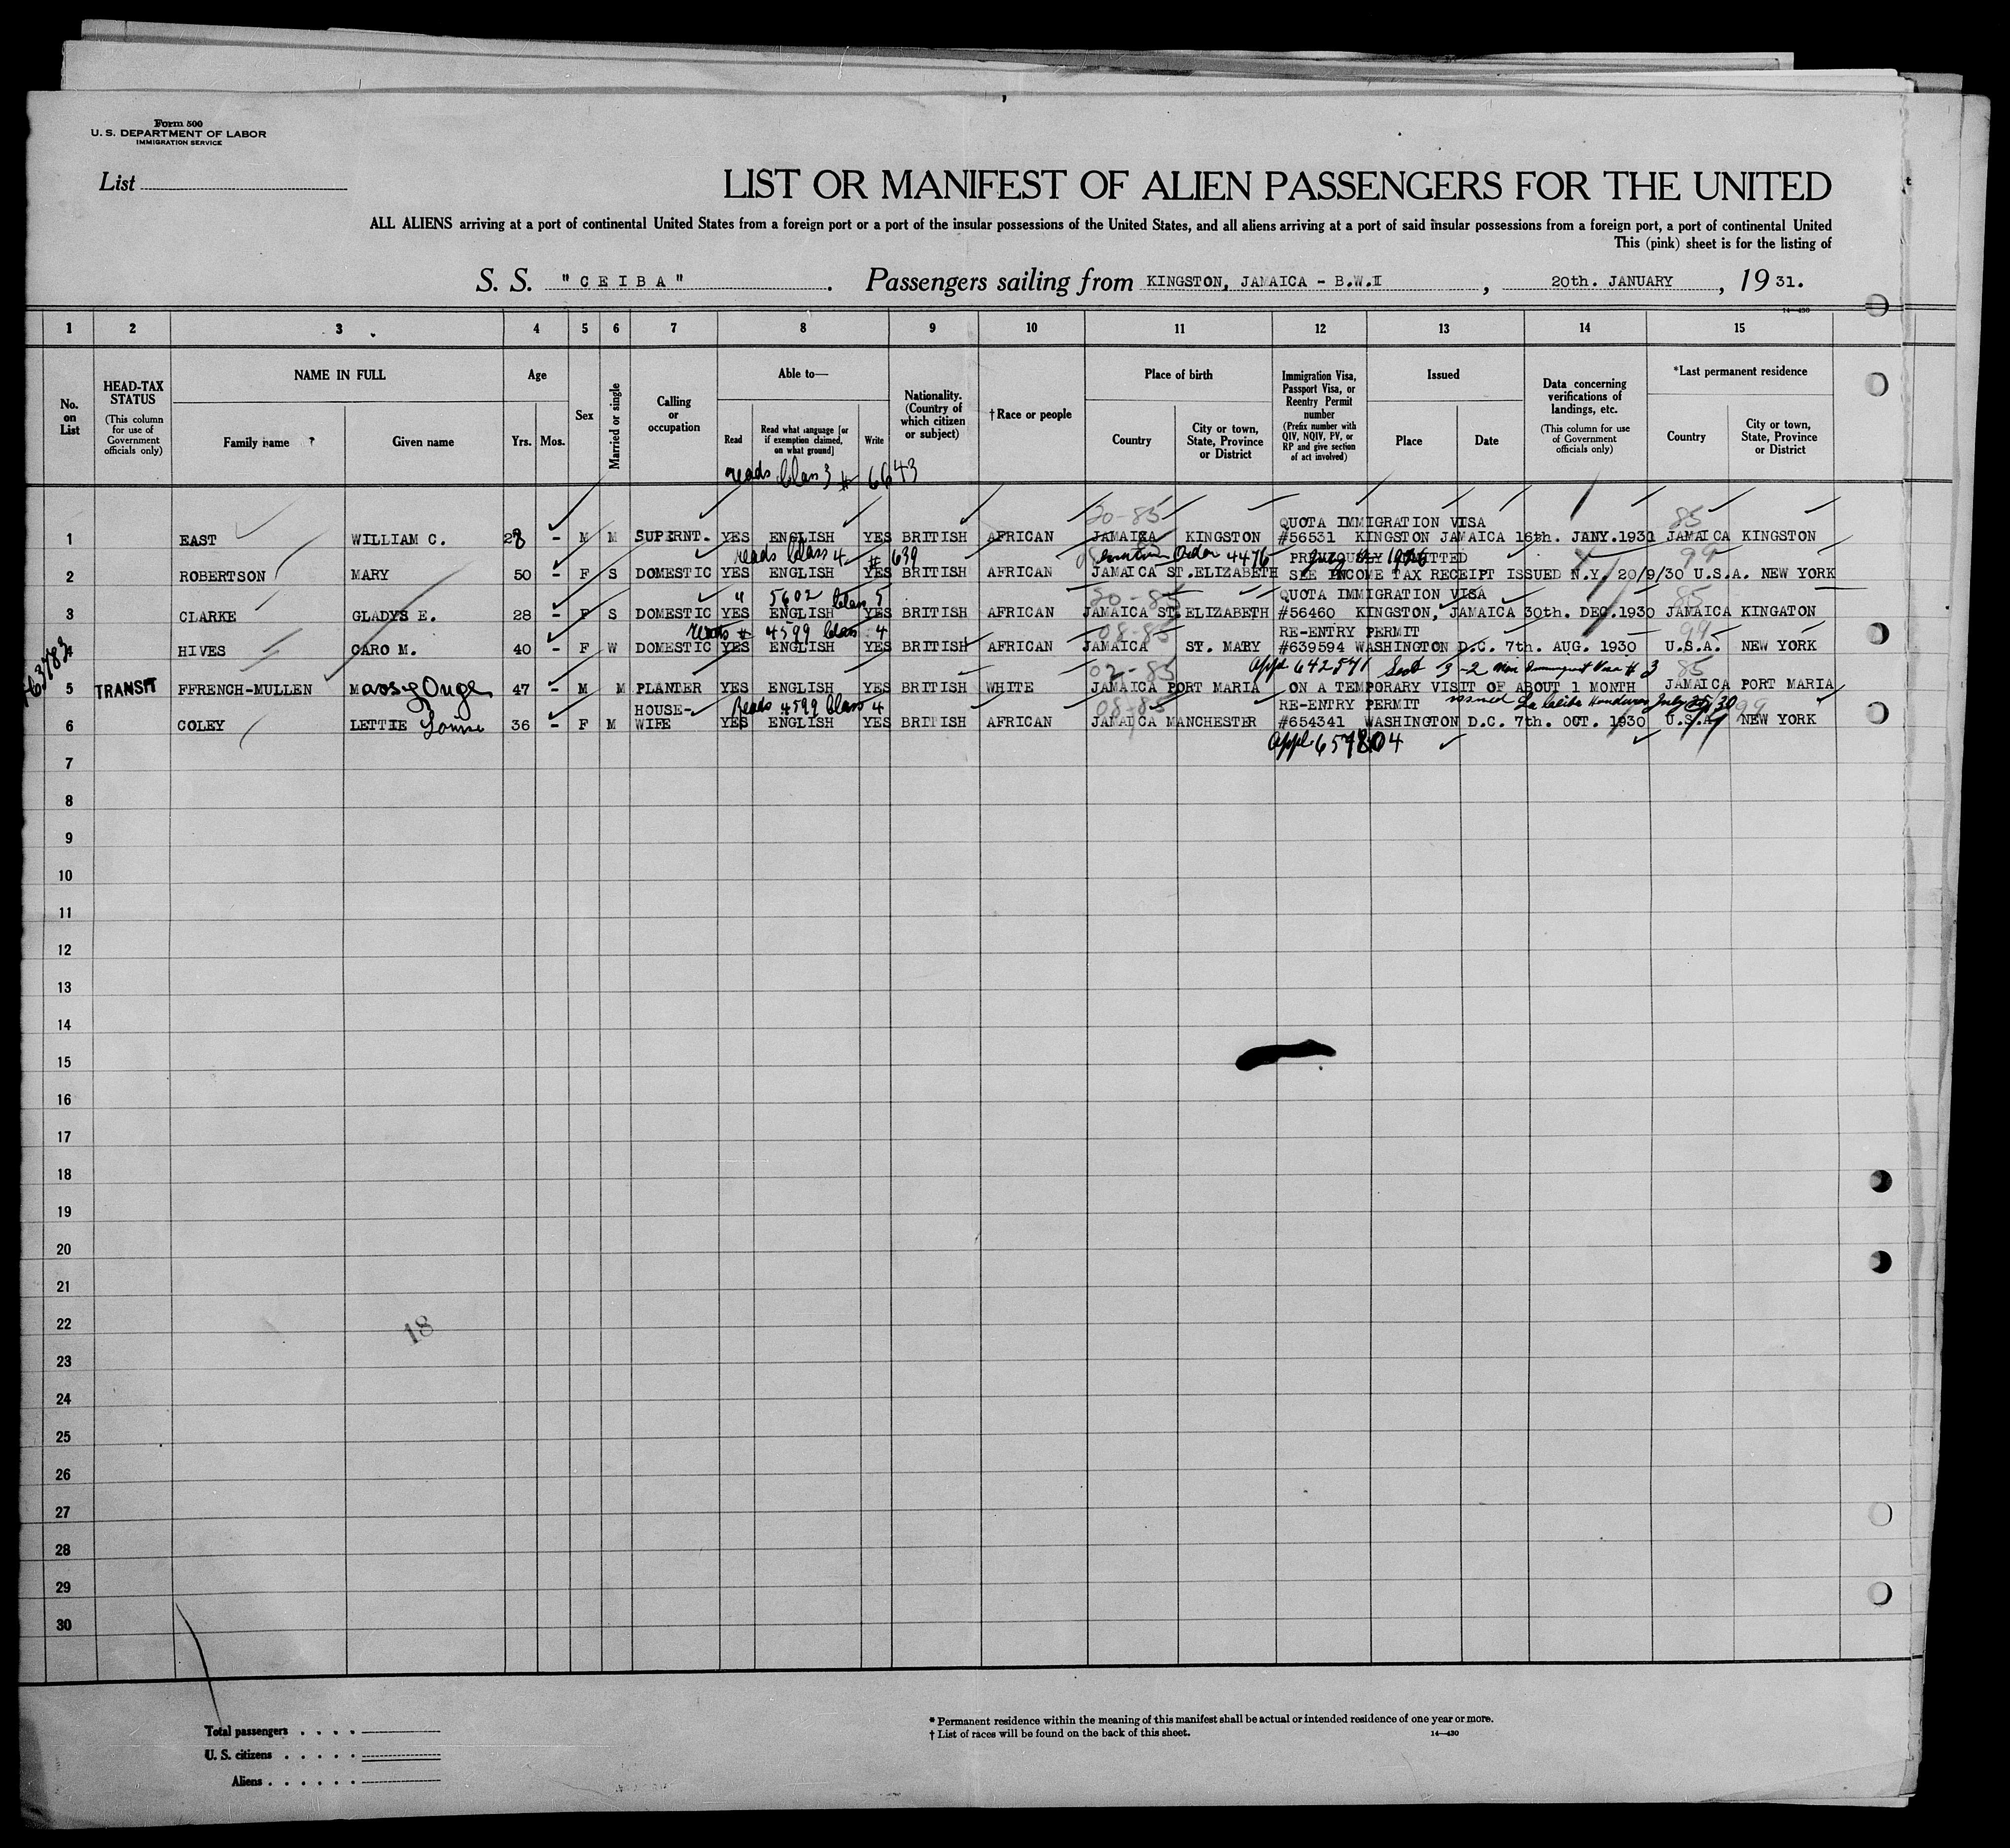 Form 500
U. S. DEPARTMENT OF LABOR
IMMIGRATION SERVICE
List
LIST OR MANIFEST OF ALIEN PASSENGERS FOR THE UNITED
ALL ALIENS arriving at a port of continental United States from a foreign port or a port of the insular possessions of the United States, and all aliens arriving at a port of said insular possessions from a foreign port, a port of continental United
This (pink) sheet is for the listing of
S. S. "CEIBA". Passengers sailing from KINGSTON, JAMAICA - B.W.I, 20th. JANUARY, 19 31.
14—430
1 2 3 4 5 6 7 8 9 10 11 12 13 14 15
No. on List
HEAD-TAX STATUS (This column for use of Government officials only)
NAME IN FULL
Family name Given name
Age
Yrs. Mos.
Sex
Married or single
Calling or occupation
Able to—
Read Read what language [or if exemption claimed, on what ground] Write
Nationality. (Country of which citizen or subject)
† Race or people
Place of birth
Country City or town, State, Province or District
Immigration Visa, Passport Visa, or Reentry Permit number (Prefix number with QIV, NQIV, PV, or RP and give section of act involved)
Issued
Place Date
Data concerning verifications of landings, etc. (This column for use of Government officials only)
*Last permanent residence
Country City or town, State, Province or District
reads Class 3 # 6643
20-85 QUOTA IMMIGRATION VISA 85
1 EAST WILLIAM C. 28 - M M SUPERNT. YES ENGLISH YES BRITISH AFRICAN JAMAICA KINGSTON #56531 KINGSTON JAMAICA 16th. JANY.1931 JAMAICA KINGSTON
reads Class 4 # 639 Order 4476 PREVIOUSLY ADMITTED 99
2 ROBERTSON MARY 50 - F S DOMESTIC YES ENGLISH YES BRITISH AFRICAN JAMAICA ST.ELIZABETH SEE INCOME TAX RECEIPT ISSUED N.Y. 20/9/30 U.S.A. NEW YORK
" 5602 Class 5 20-85 QUOTA IMMIGRATION VISA 85
3 CLARKE GLADYS E. 28 - F S DOMESTIC YES ENGLISH YES BRITISH AFRICAN JAMAICA ST. ELIZABETH #56460 KINGSTON, JAMAICA 30th. DEC.1930 JAMAICA KINGATON
Reads # 4599 Class 4 08-85 RE-ENTRY PERMIT 99
4 HIVES CARO M. 40 - F W DOMESTIC YES ENGLISH YES BRITISH AFRICAN JAMAICA ST. MARY #639594 WASHINGTON D.C. 7th. AUG. 1930 U.S.A. NEW YORK
02-85 appl 642541 Sect 3-2 Non Immigrant Visa # 3 85
5 TRANSIT FFRENCH-MULLEN 47 - M M PLANTER YES ENGLISH YES BRITISH WHITE JAMAICA PORT MARIA ON A TEMPORARY VISIT OF ABOUT 1 MONTH JAMAICA PORT MARIA
HOUSE- Reads 4599 Class 4 08-85 RE-ENTRY PERMIT issued La Ceiba Honduras July 99
6 COLEY LETTIE Louise 36 - F M WIFE YES ENGLISH YES BRITISH AFRICAN JAMAICA MANCHESTER #654341 WASHINGTON D.C. 7th. OCT. 1930 U.S.A. NEW YORK
Appl 657804
7
8
9
10
11
12
13
14
15
16
17
18
19
20
21
22
18
23
24
25
26
27
28
29
30
Total passengers . . . .
U. S. citizens . . . . .
Aliens . . . . . .
* Permanent residence within the meaning of this manifest shall be actual or intended residence of one year or more.
† List of races will be found on the back of this sheet. 14—430